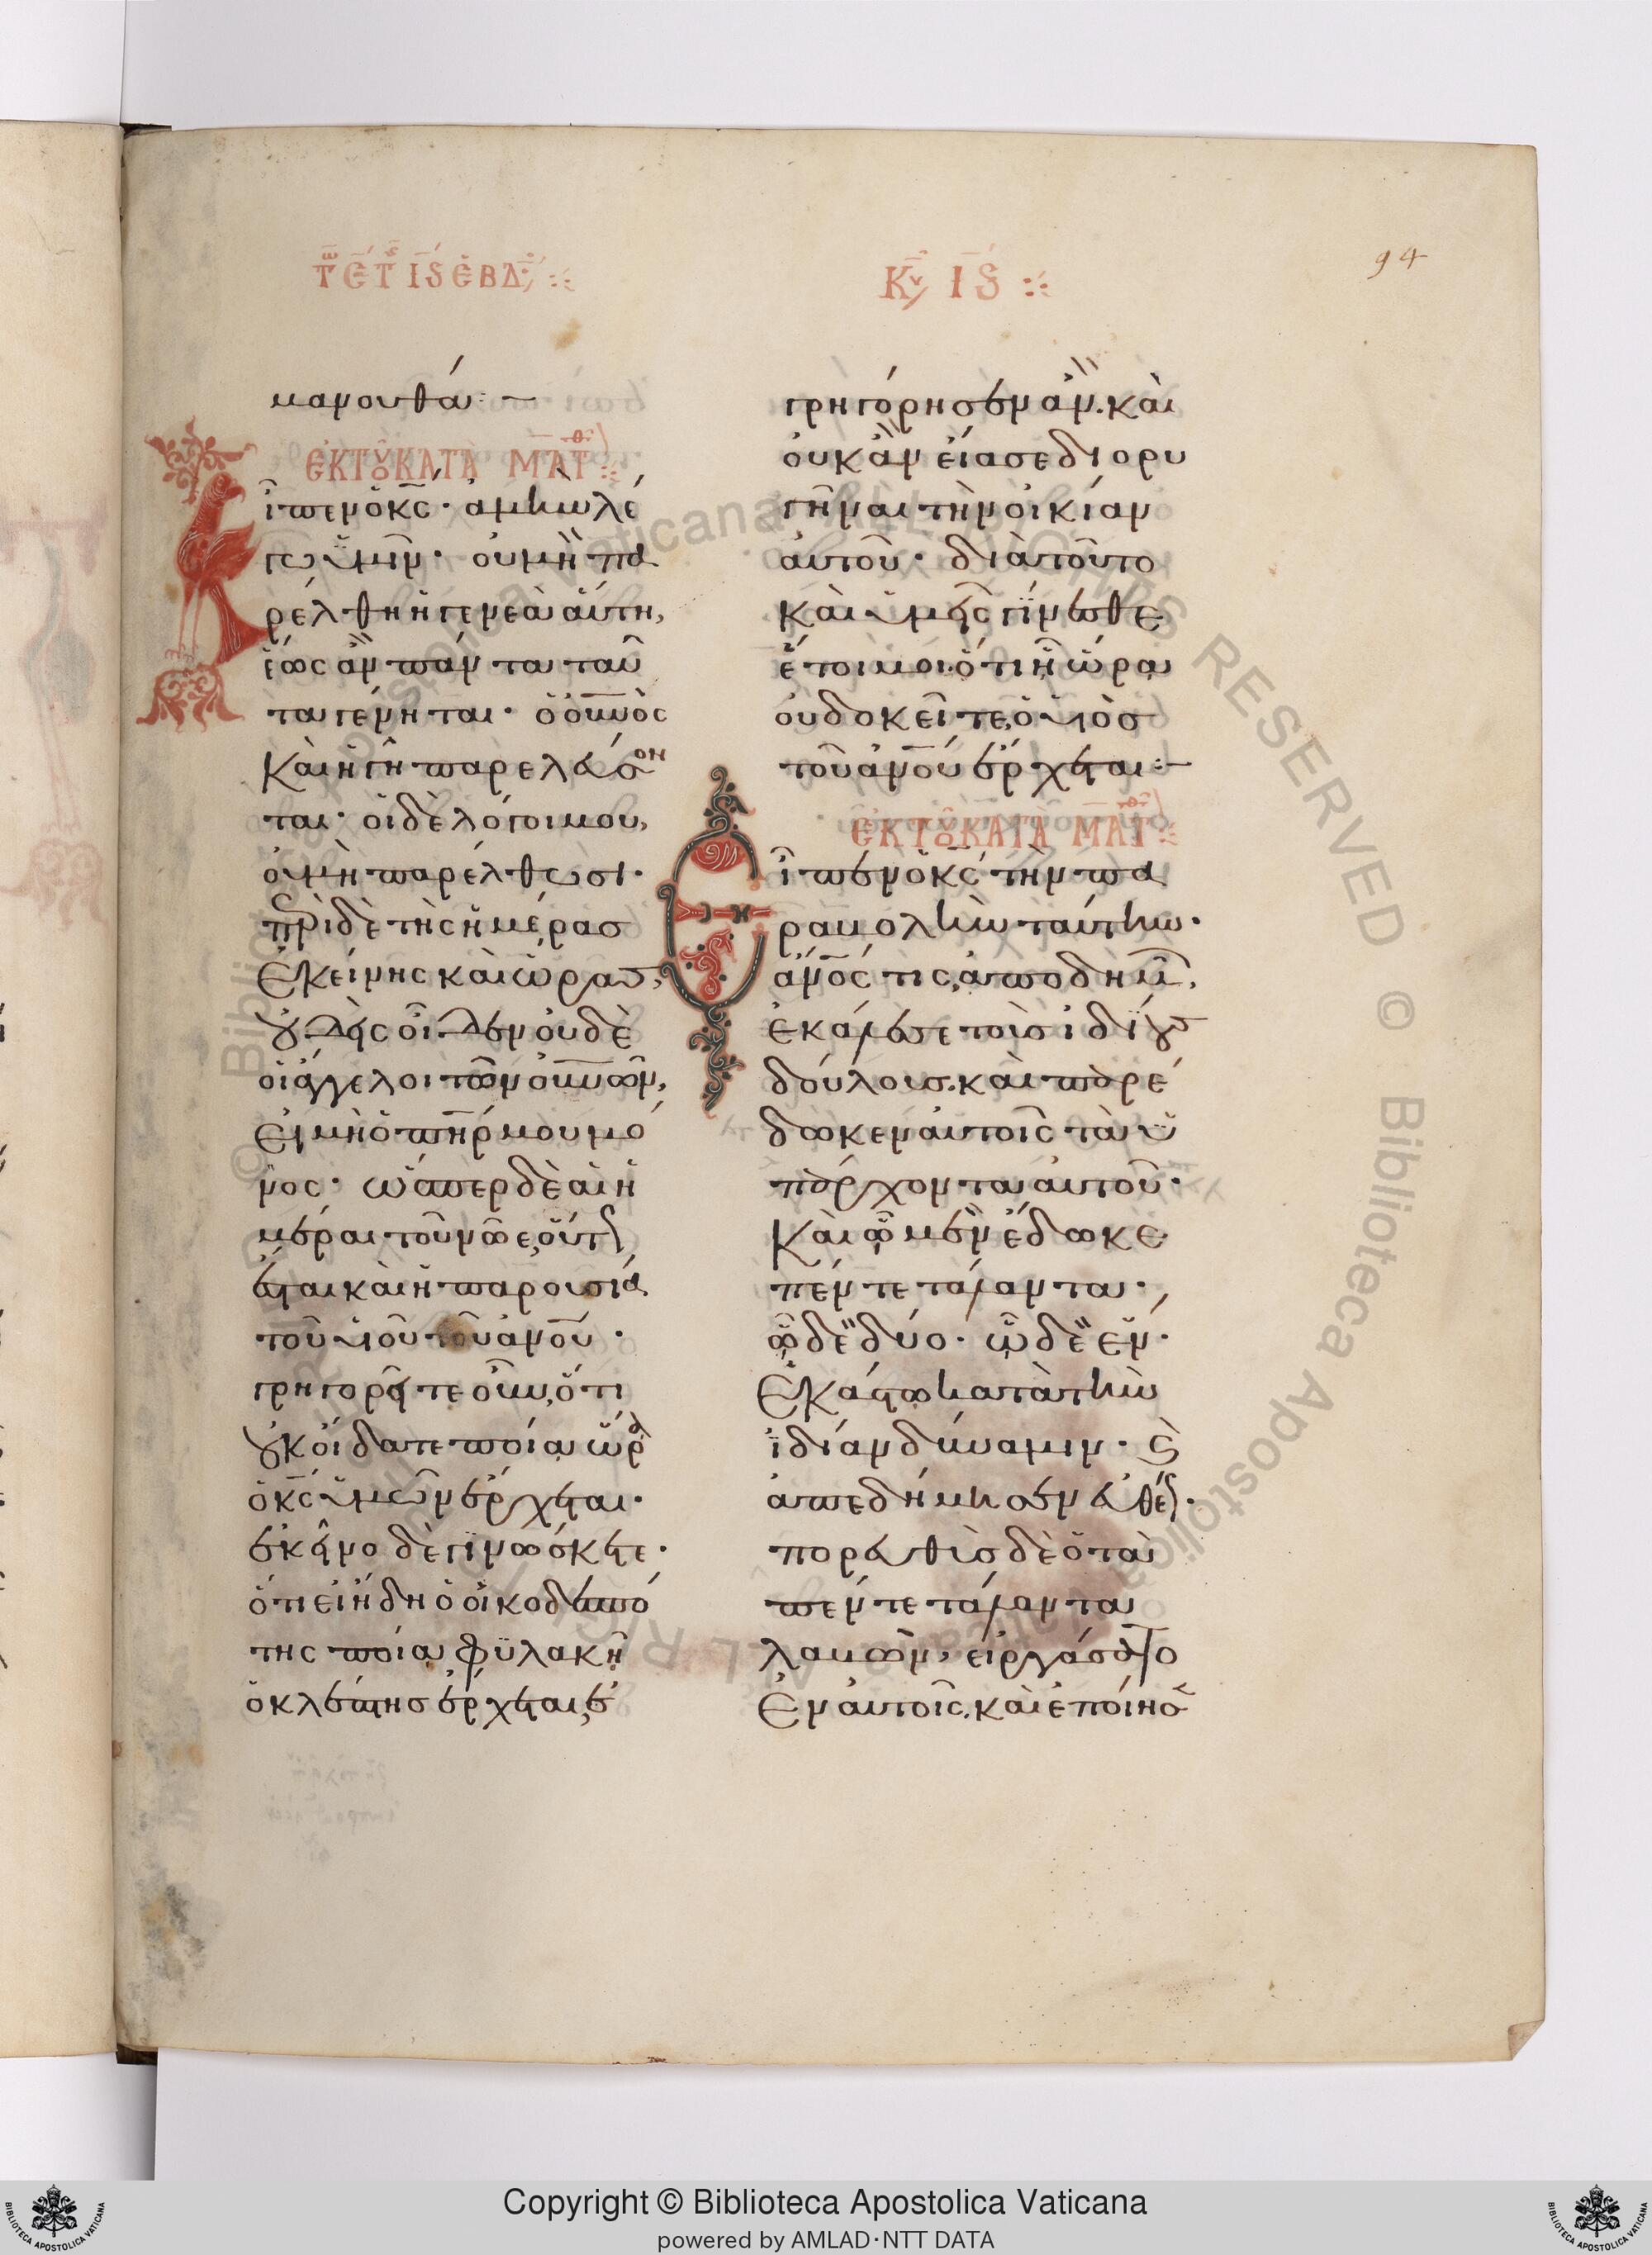 94
Τῶ ϛ̅ τ̅ ΙϚ ἙΒΔ
μανουθά :—
ἘΚ ΤΟΥ ΚΑΤΑ ΜΑΤΘ
ἶπεν ὁ κ̅ς̅· ἀμὴν λέ
γω ὑμῖν· οὐ μὴ πα
ρέλθη ἡ γενεὰ αὕτη,
ἕως ἂν πάντα ταῦ
τα γένηται· ὁ οὐ̅ν̅ο̅ς
καὶ ἡ γῆ παρελεύσον
ται· οἱ δὲ λόγοι μου,
οὐ μὴ παρέλθωσι·
περὶ δὲ τῆς ἡμέρας
ἐκείνης καὶ ὥρας,
οὐδεὶς οἶδεν οὐδὲ
οἱ ἄγγελοι τῶν οὐ̅ν̅ῶν,
εἰ μὴ ὁ π̅η̅ρ μου μό
νος· ὥσπερ δὲ αἱ ἡ
μέραι τοῦ νῶε, οὕτως
ἔσται καὶ ἡ παρουσία
τοῦ υἱοῦ τοῦ ἀ̅ν̅ο̅υ̅·
γρηγορεῖτε οὖν, ὅτι
οὐκ οἴδατε ποία ὥρα
ὁ κ̅ς̅ ὑμῶν ἔρχεται·
ἐκεῖνο δὲ γινώσκετε·
ὅτι εἰ ἤδη ὁ οἰκοδεσπό
της ποία φυλακῆ
ὁ κλέπτης ἔρχεται, ἐ
Κυ ΙϚ
γρηγόρησεν ἄν· καὶ
οὐκ ἂν εἴασε διορυ
γῆναι τὴν οἰκίαν
αὐτοῦ· διὰ τοῦτο
καὶ ὑμεῖς γίνεσθε
ἕτοιμοι· ὅτι ἧ ὥρα
οὐ δοκεῖτε, ὁ υἱὸς
τοῦ ἀ̅ν̅ο̅ύ̅ ἔρχεται :—
ἘΚ ΤΟΥ ΚΑΤΑ ΜΑΤΘ
Εἶπεν ὁ κ̅ς̅ τὴν πα
ραβολὴν ταύτην·
ἄ̅ν̅ο̅ς̅ τις, ἀποδημῶν,
ἐκάλεσε τοὺς ἰδίους
δούλους· καὶ παρέ
δωκεν αὐτοῖς τὰ ὑ
πάρχοντα αὐτοῦ·
καὶ ὧ μὲν ἔδωκε
πέντε τάλαντα·
ὧ δὲ δύο· ὧ δὲ ἕν·
ἑκάστω κατὰ τὴν
ἰδίαν δύναμιν· καὶ
ἀπεδήμησεν εὐθέως·
πορευθεὶς δὲ ὁ τὰ
πέντε τάλαντα
λαβὼν, εἰργάσατο
ἐν αὐτοῖς· καὶ ἐποίησε
Copyright © Biblioteca Apostolica Vaticana
powered by AMLAD·NTT DATA